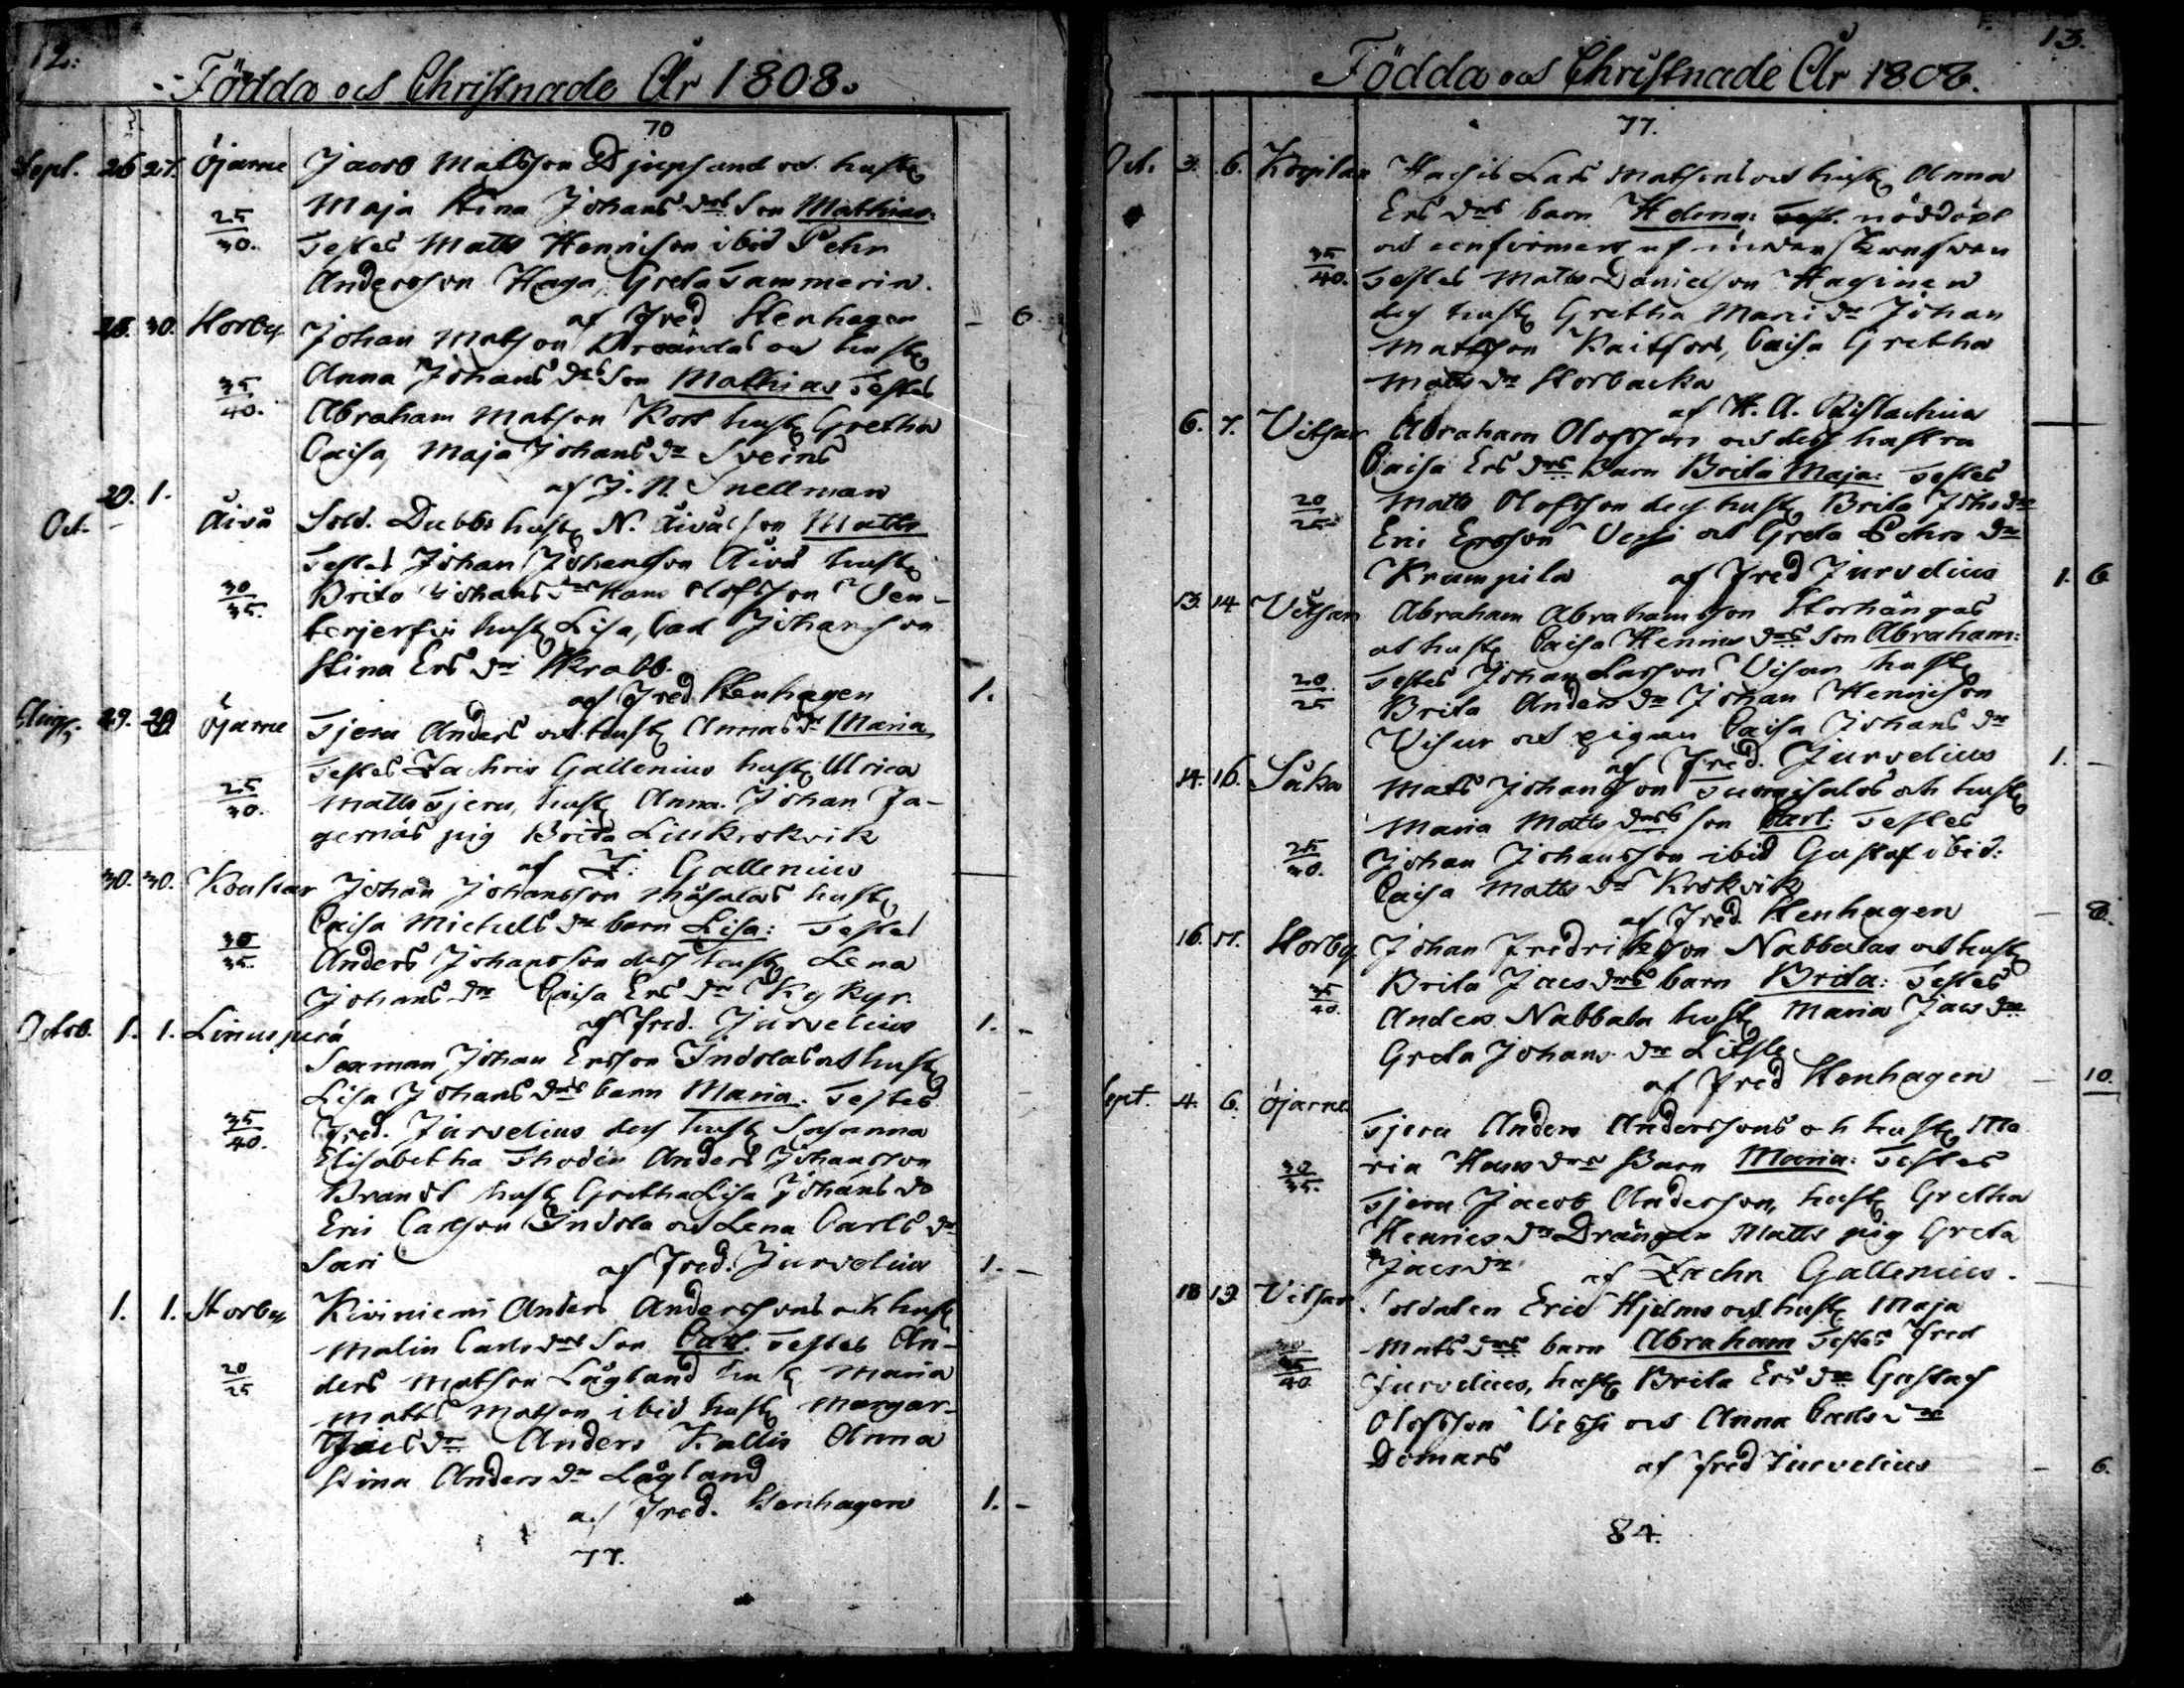 12.
Födda och Christnade År 1808.
70
Sept. 26 27. Öjarne Jacob Mattsson Djupsund och hust.
Maja Stina Johans drs Son Mathias:
25/30. Testes Matts Hennison ibid Pehr
Andersson Haga, Greta Tammerin.
af Fred Stenhagen – 6.
28. 30. Storby Johan Matson och hust.
Anna Johans drs Son Mathias Testes
35/40. Abraham Matson Kors hust. Gretha
Caisa, Maja Johans dr Sveins
af J. N. Snellman
Oct. 29. 1. Åivå Sold. Dubbs hust. N. Åivå Son Matts
Testes Johan Johanson Åivå hust.
30/35. Brita Johans dr Hans Olofsson
hust. Lisa, Johansson
Stina Ers dr Skrabb.
af Fred. Stenhagen 1.
29. 29 Öjarne Tjeru Anders och hust. Annas dr Maria
Testes Zachris Gallenius hust. Ulrica
25/30. Matts Tjeru, hust. Anna. Johan Ja-
gernäs pig Brita Linkrokvik
af Z. Gallenius
30. 30. Johan Johansson Måsalas hust.
Caisa Michels dr barn Lisa: Testes
30/35. Anders Johansson dess hust. Lena
Johans dr Caisa Ers dr Kykyr.
af Fred. Jurvelius 1. –
Octob. 1. 1. Linusperä
Sexman Johan Ersson Indolas och hust.
Lisa Johans drs barn Maria. Testes
35/40. Fred. Jurvelius dess hust. Susanna
Elisabetha Thodén Anders Johansson
Brandt hust. Gretha Lisa Johans dr
Eric Carlson Indola och Lena Carls dr
Sari af Fred. Jurvelius 1. –
1. 1. Storby Kiviniemi Anders Anderssons och hust.
Malin Carls drs Son Carl. Testes An-
20/25 ders Matson Lågland hust. Maria
Matts Matson ibid hust. Margar-
Jacs dr Anders Kallis Anna
Stina Anders dr Lågland
af Fred. Stenhagen 1. –
77.
13.
Födda och Christnade År 1808.
77.
Oct. 3. 6. Korpilax Hasis Lars Matsons och hust. Anna
Ers drs barn Helena: nöddöpt
och confirmerat af
35/40. Testes Matts Danielson Hasinen
dess hust. Gretha Marci dr Johan
Mattsson Kaitfors, Caisa Gretha
Matts dr Storbacka
af H. A.
6. 7. Vitsar Abraham Olofsson och dess hustru
Caisa Ers drs Barn Brita Maja: Testes
20/25. Matts Olofsson dess hust. Brita Johs dr
Eric Ersson och Greta Pehrs dr
Krumpila af Fred Jurvelius 1. 6
13. 14 Vitsar Abraham Abrahamsson Storhängas
och hust. Caisa Hennis drs Son Abraham:
20/25 Testes Johan Larsson Visar hust.
Brita Anders dr Johan Hennison
Visur och pigan Caisa Johans dr
af Fred. Jurvelius 1. –
14. 16. Såka Mats Johansson och hust.
Maria Matts drs son Carl: Testes
25/30. Johan Johansson ibid Gustaf ibid:
Caisa Matts dr Krokvik
af Fred. Stenhagen – 8.
16. 17. Storby Johan Fredrikson Nabbalas och hust.
Brita Jacs drs barn Brita: Testes
35/40. Anders Nabbala hust. Maria Jacs dr
Greta Johans dr Litsle
af Fred Stenhagen – 10.
Sept. 4. 6. Öjarne
Tjeru Anders Anderssons och hust. Ma
30/35. ria Hans drs Barn Maria: Testes
Tjeru Jacob Anderson, hust. Gretha
Henrics dr Drängen Matts pig Greta
Jacs dr af Zachr Gallenius.
18 19 Vitsar Soldaten Eric Hjelms och hust. Maja
Mats drs barn Abraham Testes Fred
35/40 Jurvelius, hust. Brita Ers dr Gustaf
Olofsson och Anna Carls dr
Domars af Fred Jurvelius – 6.
84.